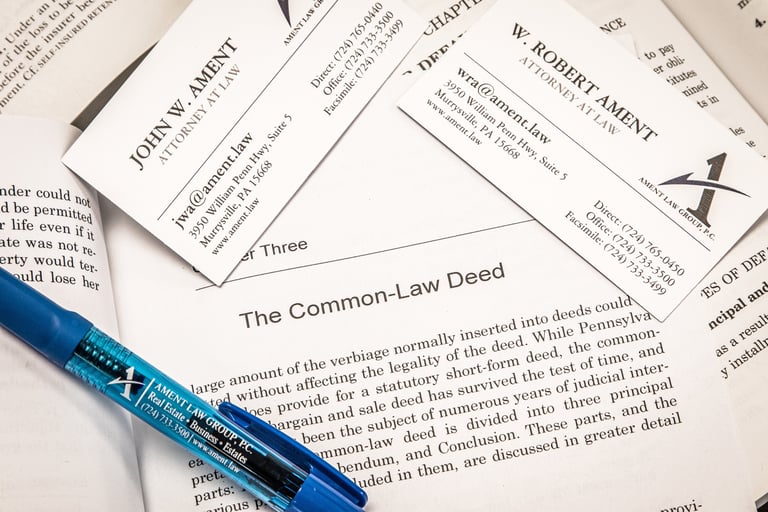 Under an
to a
before the insurer bec
ment. Cf. SELF INSURED RETEN
JOHN W. AMENT
ATTORNEY AT LAW
jwa@ament.law
3950 William Penn Hwy, Suite 5
Murrysville, PA 15668
www.ament.law
AMENT LAW GR
Direct: (724) 765-0440
Office: (724) 733-3500
Facsimile: (724) 733-3499
CHAPTE
W. ROBERT AMENT
ATTORNEY AT LAW
wra@ament.law
3950 William Penn Hwy, Suite 5
Murrysville, PA 15668
www.ament.law
AMENT LAW GROUP, P.C.
Direct: (724) 765-0450
Office: (724) 733-3500
Facsimile: (724) 733-3499
to pay
er obli-
titutes
ments
ts in
4.
nder could not
d be permitted
r life even if it
ate was not re-
erty would ter-
ould lose her
er Three
The Common-Law Deed
large amount of the verbiage normally inserted into deeds could
ted without affecting the legality of the deed. While Pennsylva
oes provide for a statutory short-form deed, the common-
bargain and sale deed has survived the test of time, and
been the subject of numerous years of judicial inter-
mmon-law deed is divided into three principal
bendum, and Conclusion. These parts, and the
luded in them, are discussed in greater detail
ea
pret
parts:
various p
provi-
ES OF DEF
ncipal and
as a result
y install
AMENT LAW GROUP, P.C.
Real Estate • Business • Estates
(724) 733-3500 | www.ament.law